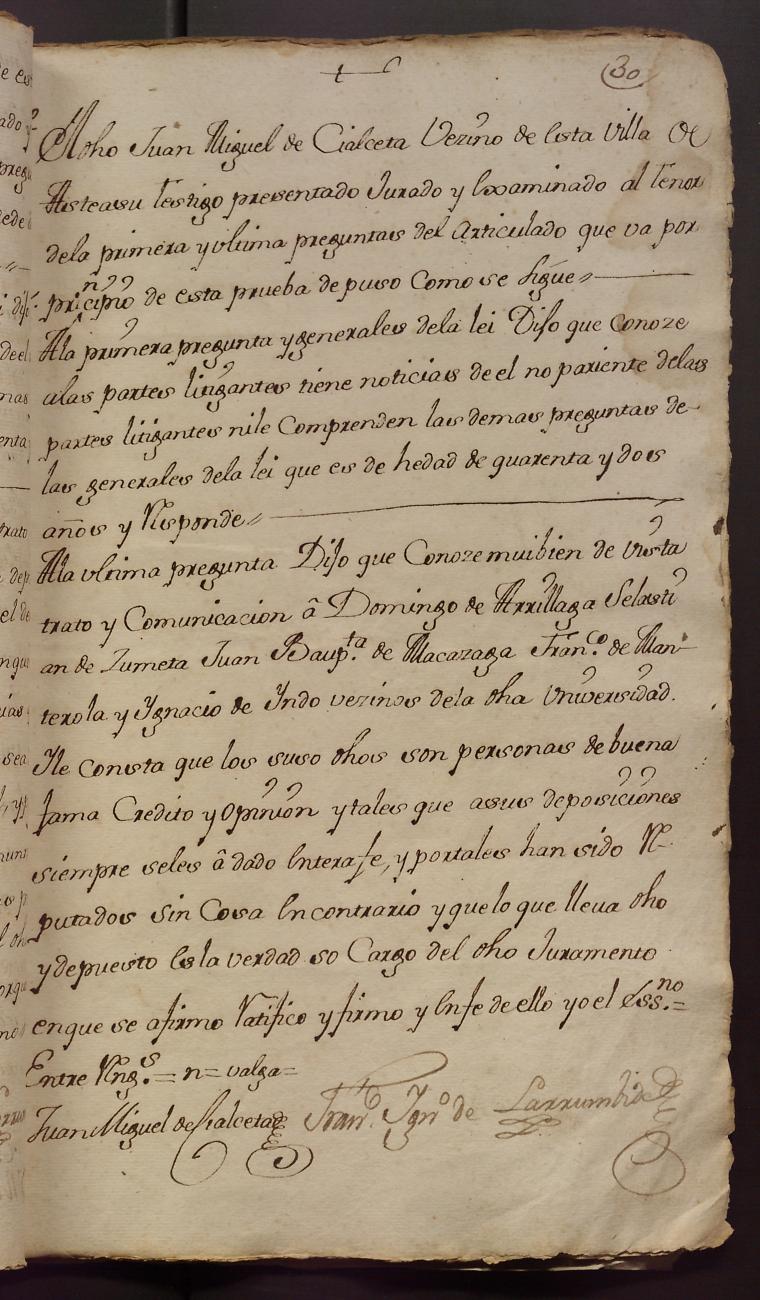 30
El dho Juan Miguel de Cialceta Vezino de Esta villa de
Asteasu testigo presentado Jurado y Exsaminado al tenor
dela primera y vltima preguntas del articulado que va por
principio de esta prueba depuso Como se sigue
Ala primera pregunta y generales dela lei Dijo que conoze
alas partes litigantes tiene noticias de el no pariente delas
partes litigantes nile Comprenden las demas preguntas de
las generales dela lei que es de hedad de quarenta y dos
años y Responde
Ala vltima pregunta Dijo que Conoze mui bien de vista
trato y Comunicacion â Domingo de Arrillaga Sebasti
an de Zumeta Juan Baupta. de Macazaga Franco. de Man-
terola y Ygnacio de Yndo vezinos dela dha Vniversidad.
Yle consta que los suso dhos son personas de buena
fama Credito y opinion y tales que asus deposiciones
siempre seles â dado Entera fe, y portales han sido Re-
putados sin Cosa En contrario y que lo que lleua dho
y depuesto Es la verdad so Cargo del dho Juramento
enque se afirmo Ratifico y firmo y Enfe de ello yo el Essno.=
Entre Rengs.= n= valga=
Juan Miguel de Cialceta Franco. Ygno de Larrumbide